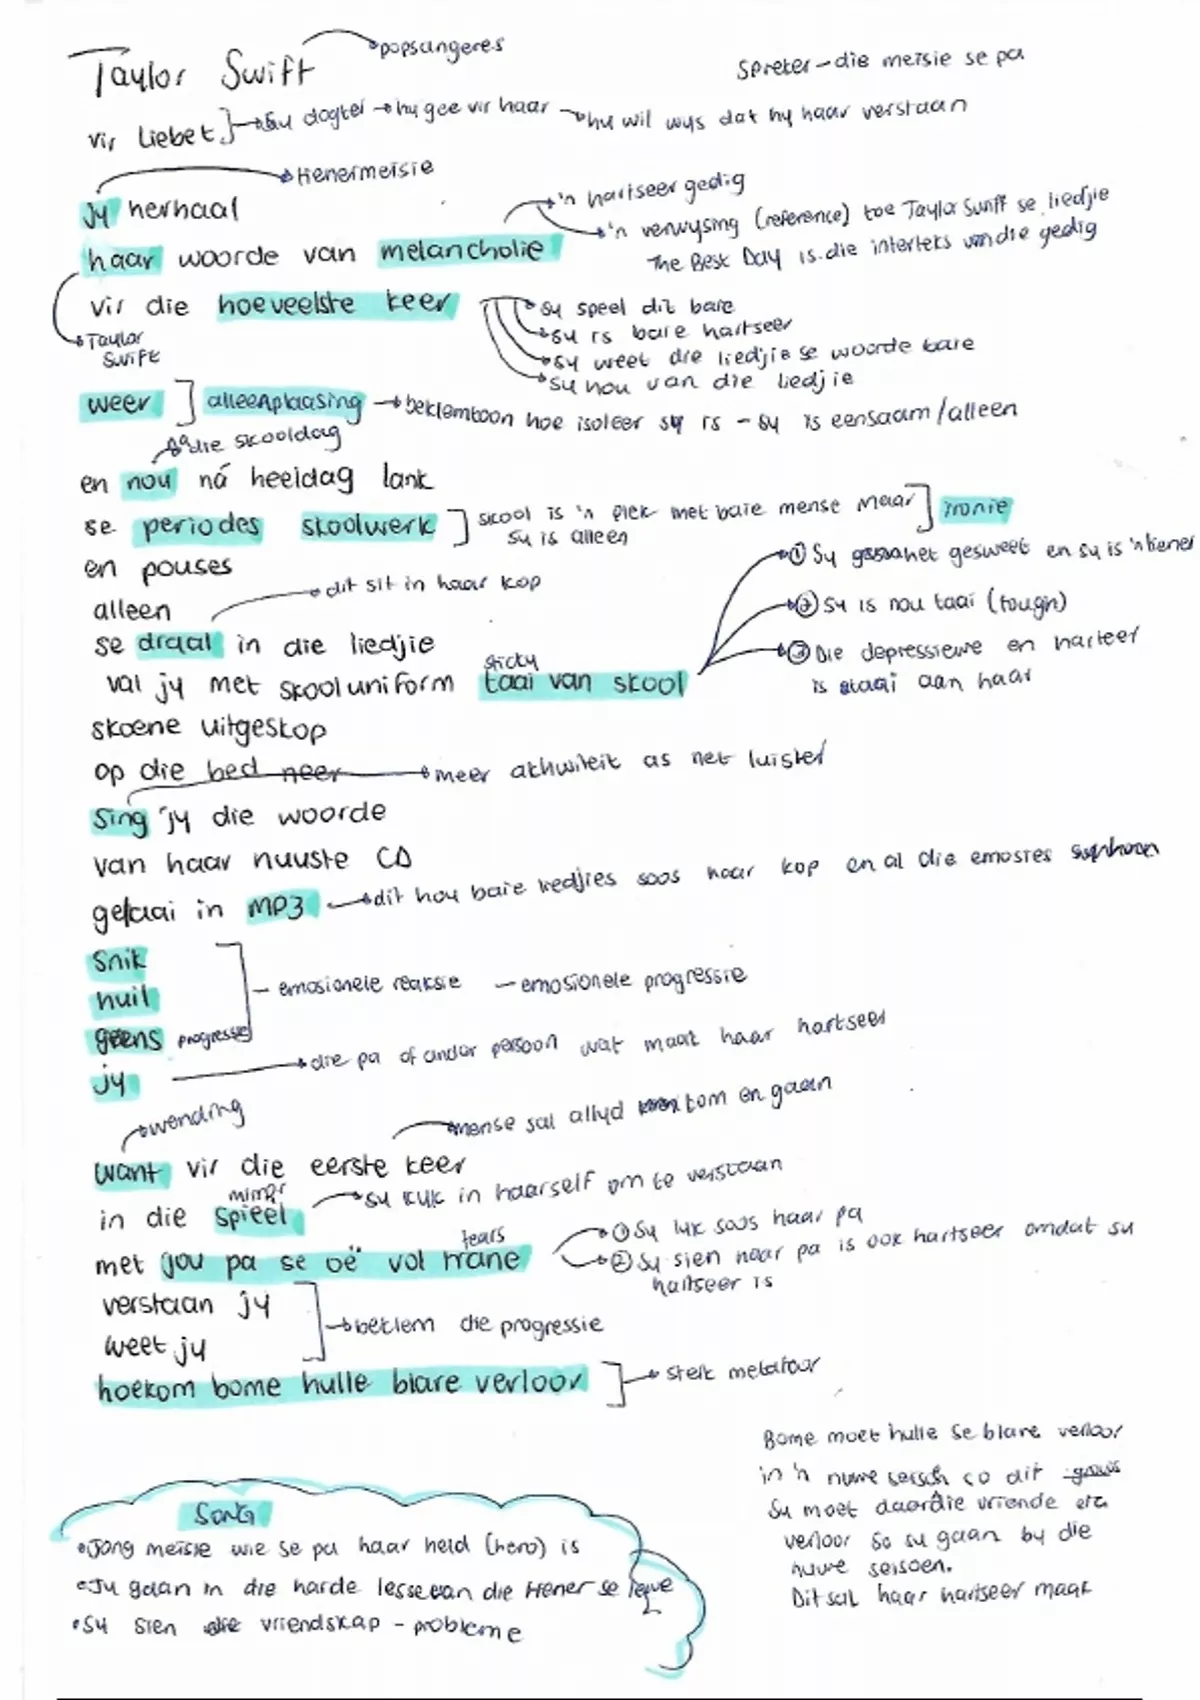 Taylor Swift
popsangeres
Spreker – die meisie se pa
vir Liebet
sy dogter → hy gee vir haar → hy wil wys dat hy haar verstaan
tienermeisie
jy herhaal
'n hartseer gedig
haar woorde van melancholie
'n verwysing (reference) toe Taylor Swift se liedjie
The Best Day is die interteks van die gedig
vir die hoeveelste keer
sy speel dit baie
sy is baie hartseer
sy weet die liedjie se woorde baie
sy hou van die liedjie
Taylor
Swift
weer ] alleenplaasing → beklemtoon hoe isoleer sy is – sy is eensaam/alleen
die skooldag
en nou ná heeldag lank
se periodes skoolwerk ] skool is 'n plek met baie mense maar ] ironie
sy is alleen
en pouses
① Sy het gesweet en sy is 'n tiener
dit sit in haar kop
alleen
② Sy is nou taai (tough)
se draal in die liedjie
③ Die depressiewe en harteer
is taai aan haar
sticky
val jy met skooluniform taai van skool
skoene uitgeskop
op die bed neer
meer aktiwiteit as net luister
Sing jy die woorde
van haar nuuste CD
gelaai in MP3 → dit hou baie liedjies soos haar kop en al die emosies
Snik
huil
– emosionele reaksie – emosionele progressie
progressie
jy → die pa of ander persoon wat maak haar hartseer
wending
mense sal altyd kom en gaan
want vir die eerste keer
mirror
in die spieel
sy kyk in haarself om te verstaan
tears
met jou pa se oë vol trane
① Sy lyk soos haar pa
② Sy sien haar pa is ook hartseer omdat sy
hartseer is
verstaan jy
weet jy
beklem die progressie
hoekom bome hulle blare verloor ] → sterk metafoor
Bome moet hulle se blare verloor
in 'n nuwe seisoen so dit
Sy moet daardie vriende etc
verloor so sy gaan by die
nuwe seisoen.
Dit sal haar hartseer maak
SONG
• Jong meisie wie se pa haar held (hero) is
• Jy gaan in die harde lesse van die tiener se lewe
• Sy sien die vriendskap – probleme